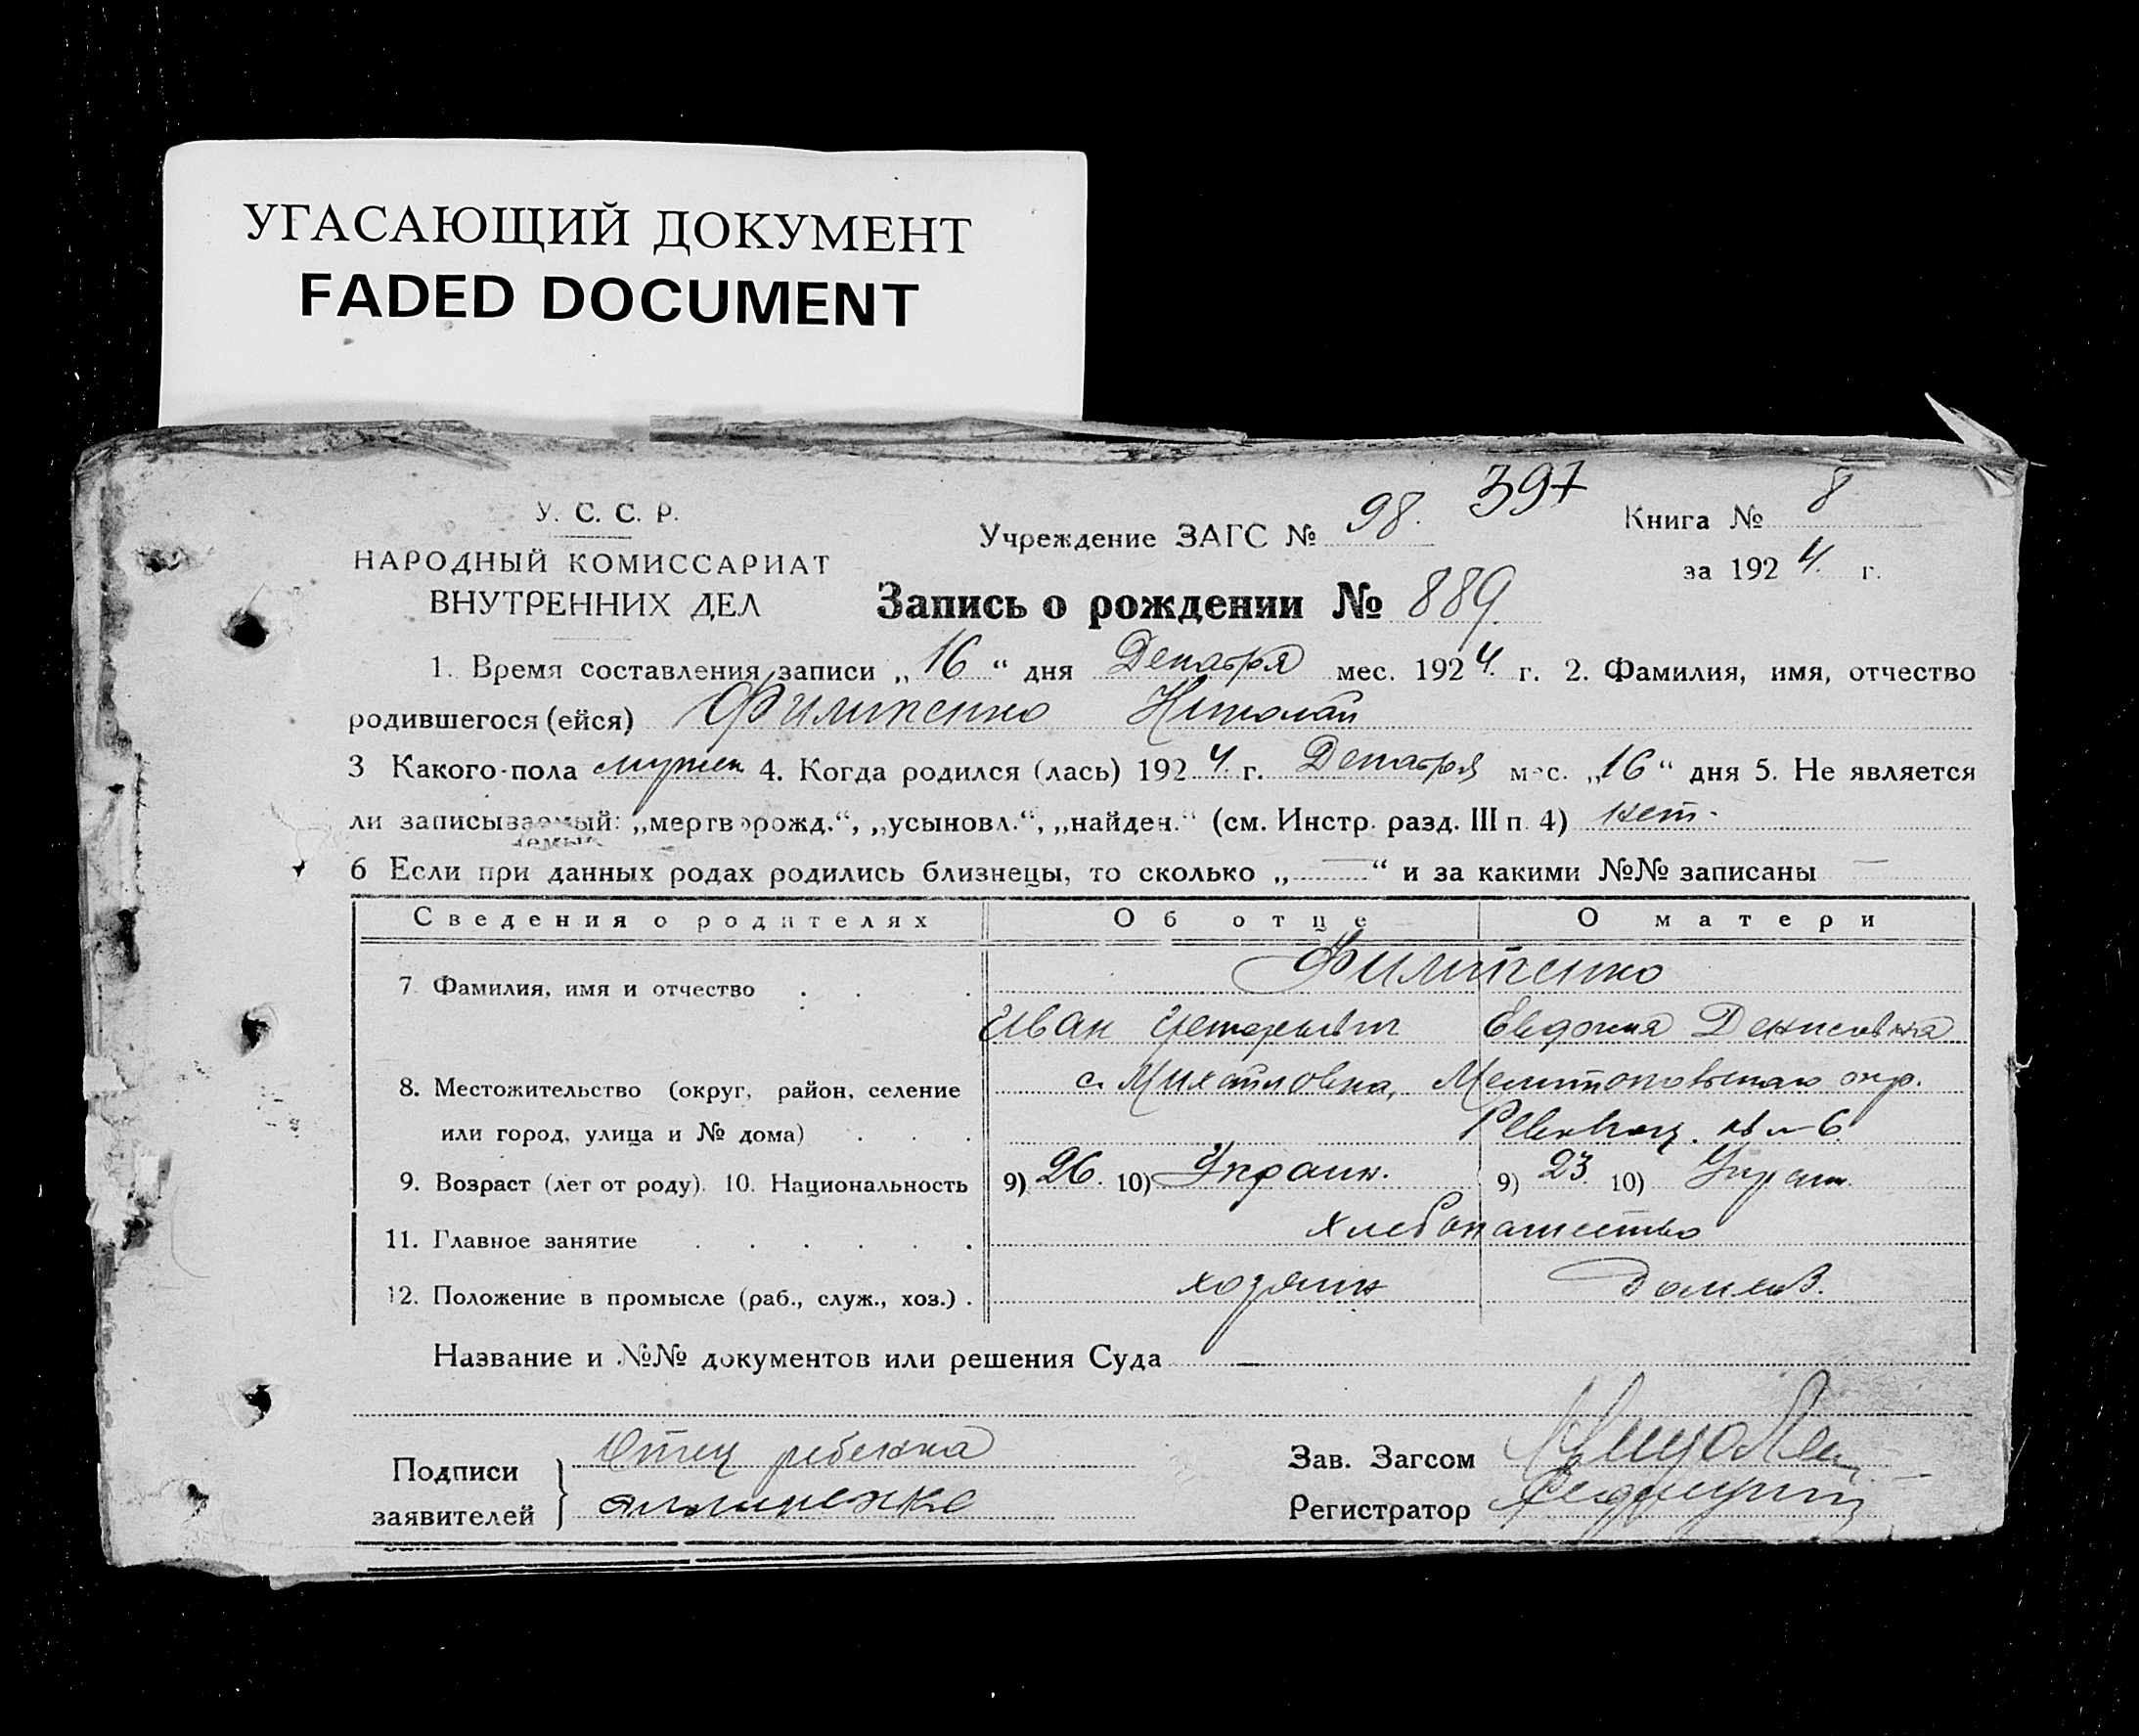 УГАСАЮЩИЙ ДОКУМЕНТ
FADED DOCUMENT
У. С. С. Р.
НАРОДНЫЙ КОМИССАРИАТ
ВНУТРЕННИХ ДЕЛ
Учреждение ЗАГС № 98. 397
Книга № 8
за 1924 г.
Запись о рождении № 889.
1. Время составления записи „16“ дня Декабря мес. 1924 г. 2. Фамилия, имя, отчество
родившегося (ейся) Филипенко Николай
3 Какого-пола мужск 4. Когда родился (лась) 1924 г. Декабря мес. „16“ дня 5. Не является
ли записываемый: „мертворожд.“, „усыновл.“, „найден.“ (см. Инстр. разд. III п. 4) нет.
6 Если при данных родах родились близнецы, то сколько „—“ и за какими №№ записаны —
Сведения о родителях Об отце О матери
7. Фамилия, имя и отчество . . . Филипенко
Иван Евдокия Денисовна
8. Местожительство (округ, район, селение с. Михайловка, Мелитопольского окр.
или город, улица и № дома) . . . кв № 6
9. Возраст (лет от роду). 10. Национальность 9) 26. 10) Украин. 9) 23. 10) Украин.
11. Главное занятие . . . . . . хлебопашество
12. Положение в промысле (раб., служ., хоз.) . хозяин домхоз.
Название и №№ документов или решения Суда —
Подписи заявителей } Отец ребенка
Филипенко
Зав. Загсом
Регистратор